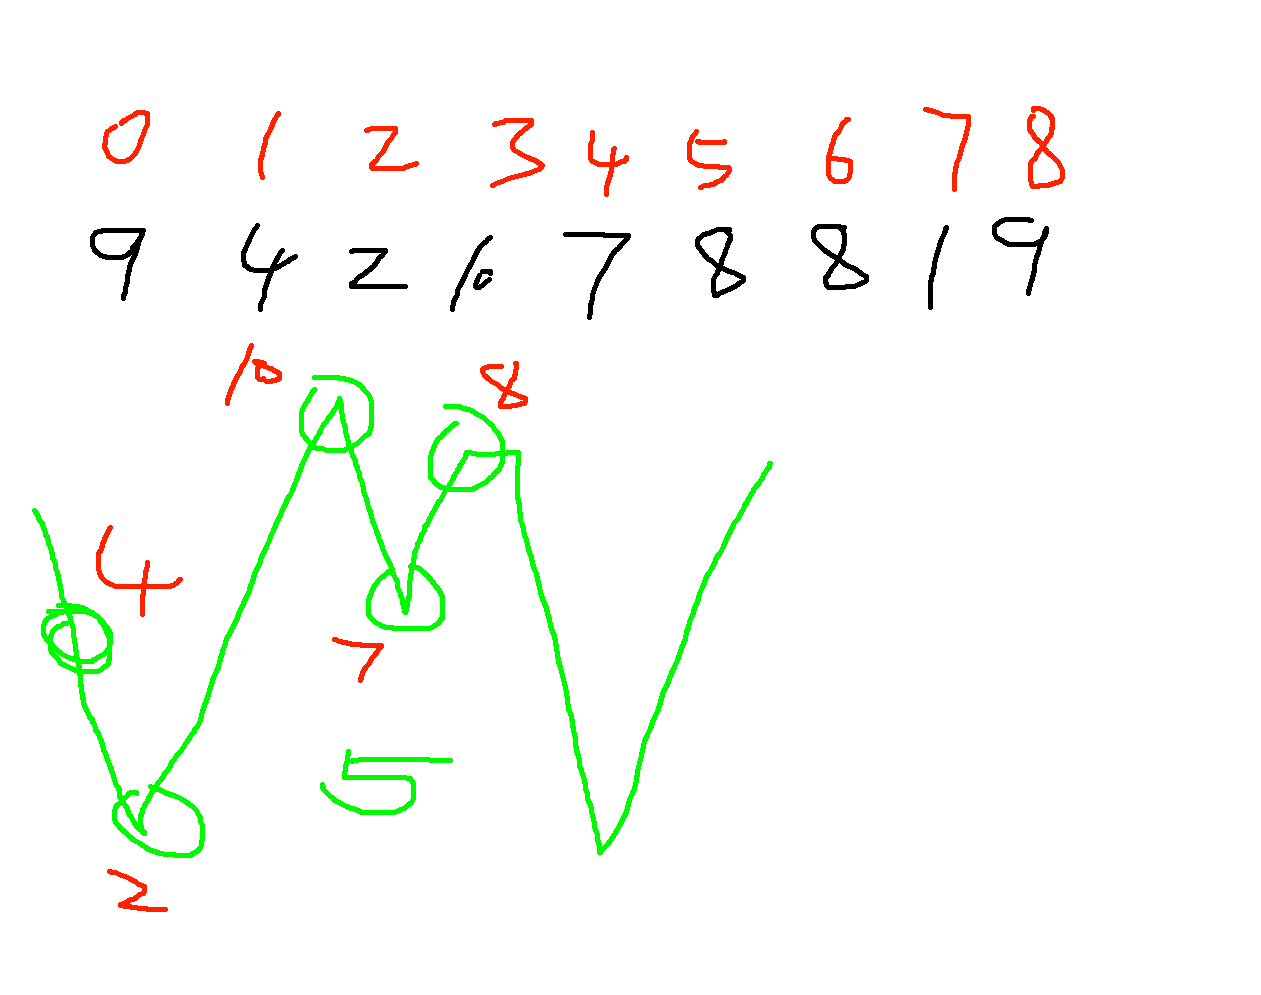 0 1 2 3 4 5 6 7 8
9 4 2 10 7 8 8 1 9
10 8
4
7
5
2